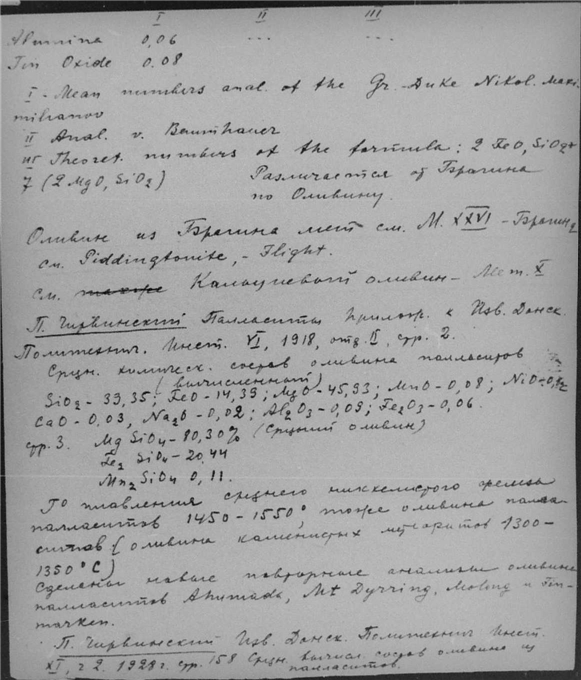 I II III
Alumina 0,06 ... ...
Tin Oxide 0.08
I - Mean numbers anal. of the Gr. Duke Nikol. Maxi-
milianov
II Anal. v. Baumhauer
III Theoret. numbers of the formula: 2 FeO, SiO2+
7 (2 MgO, SiO2) Различается от Брагина
по Оливину.
Оливин из Брагина мет см. М. XXVI - Брагин,
см. Piddingtonite, - Flight.
см. также Кальциевый оливин - Мет. X
П. Чирвинский Палласиты Прилож. к Изв. Донск.
Политехнич. Инст. VI, 1918, отд. II, стр. 2.
Средн. химическ. состав оливина палласитов
(вычисленный)
SiO2 - 39,35; FeO - 14,39; MgO - 45,93; MnO - 0,08; NiO-
CaO - 0,03, Na2O - 0,02; Al2O3 - 0,09; Fe2O3 - 0,06.
стр. 3. Mg SiO4 - 80,30% (Средний оливин)
Fe2 SiO4 - 20,44
Mn2 SiO4 0,11.
То плавления среднего никкелистого железа
палласитов 1450 - 1550°, тоже оливина палла-
ситов (оливина каменистых метеоритов 1300 -
1350°C)
Сделаны новые повторные анализы оливина
палласитов Ahumada, Mt Dyrring, Molong и Fin-
marken.
П. Чирвинский Изв. Донск. Политехнич Инст.
XI, ч 2. 1928г. стр. 158 Средн. вычисл. состав оливина из
палласитов.